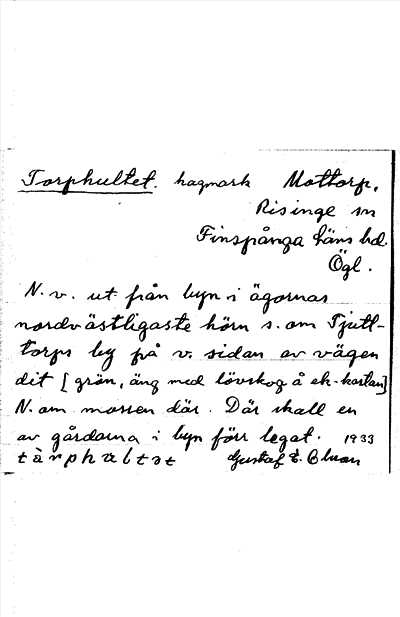 Torphultet. hagmark Mottorp,
Risinge sn
Finspånga läns hd.
Ögl.
N.v. ut från byn i ägornas
nordvästligaste hörn s. om Tjutt-
torps by på v. sidan av vägen
dit [grön, äng med lövskog å ek-kartan]
N. om mossen där. Där skall en
av gårdarna i byn förr legat. 1933
tàrphʉltət Gustaf E. Blman